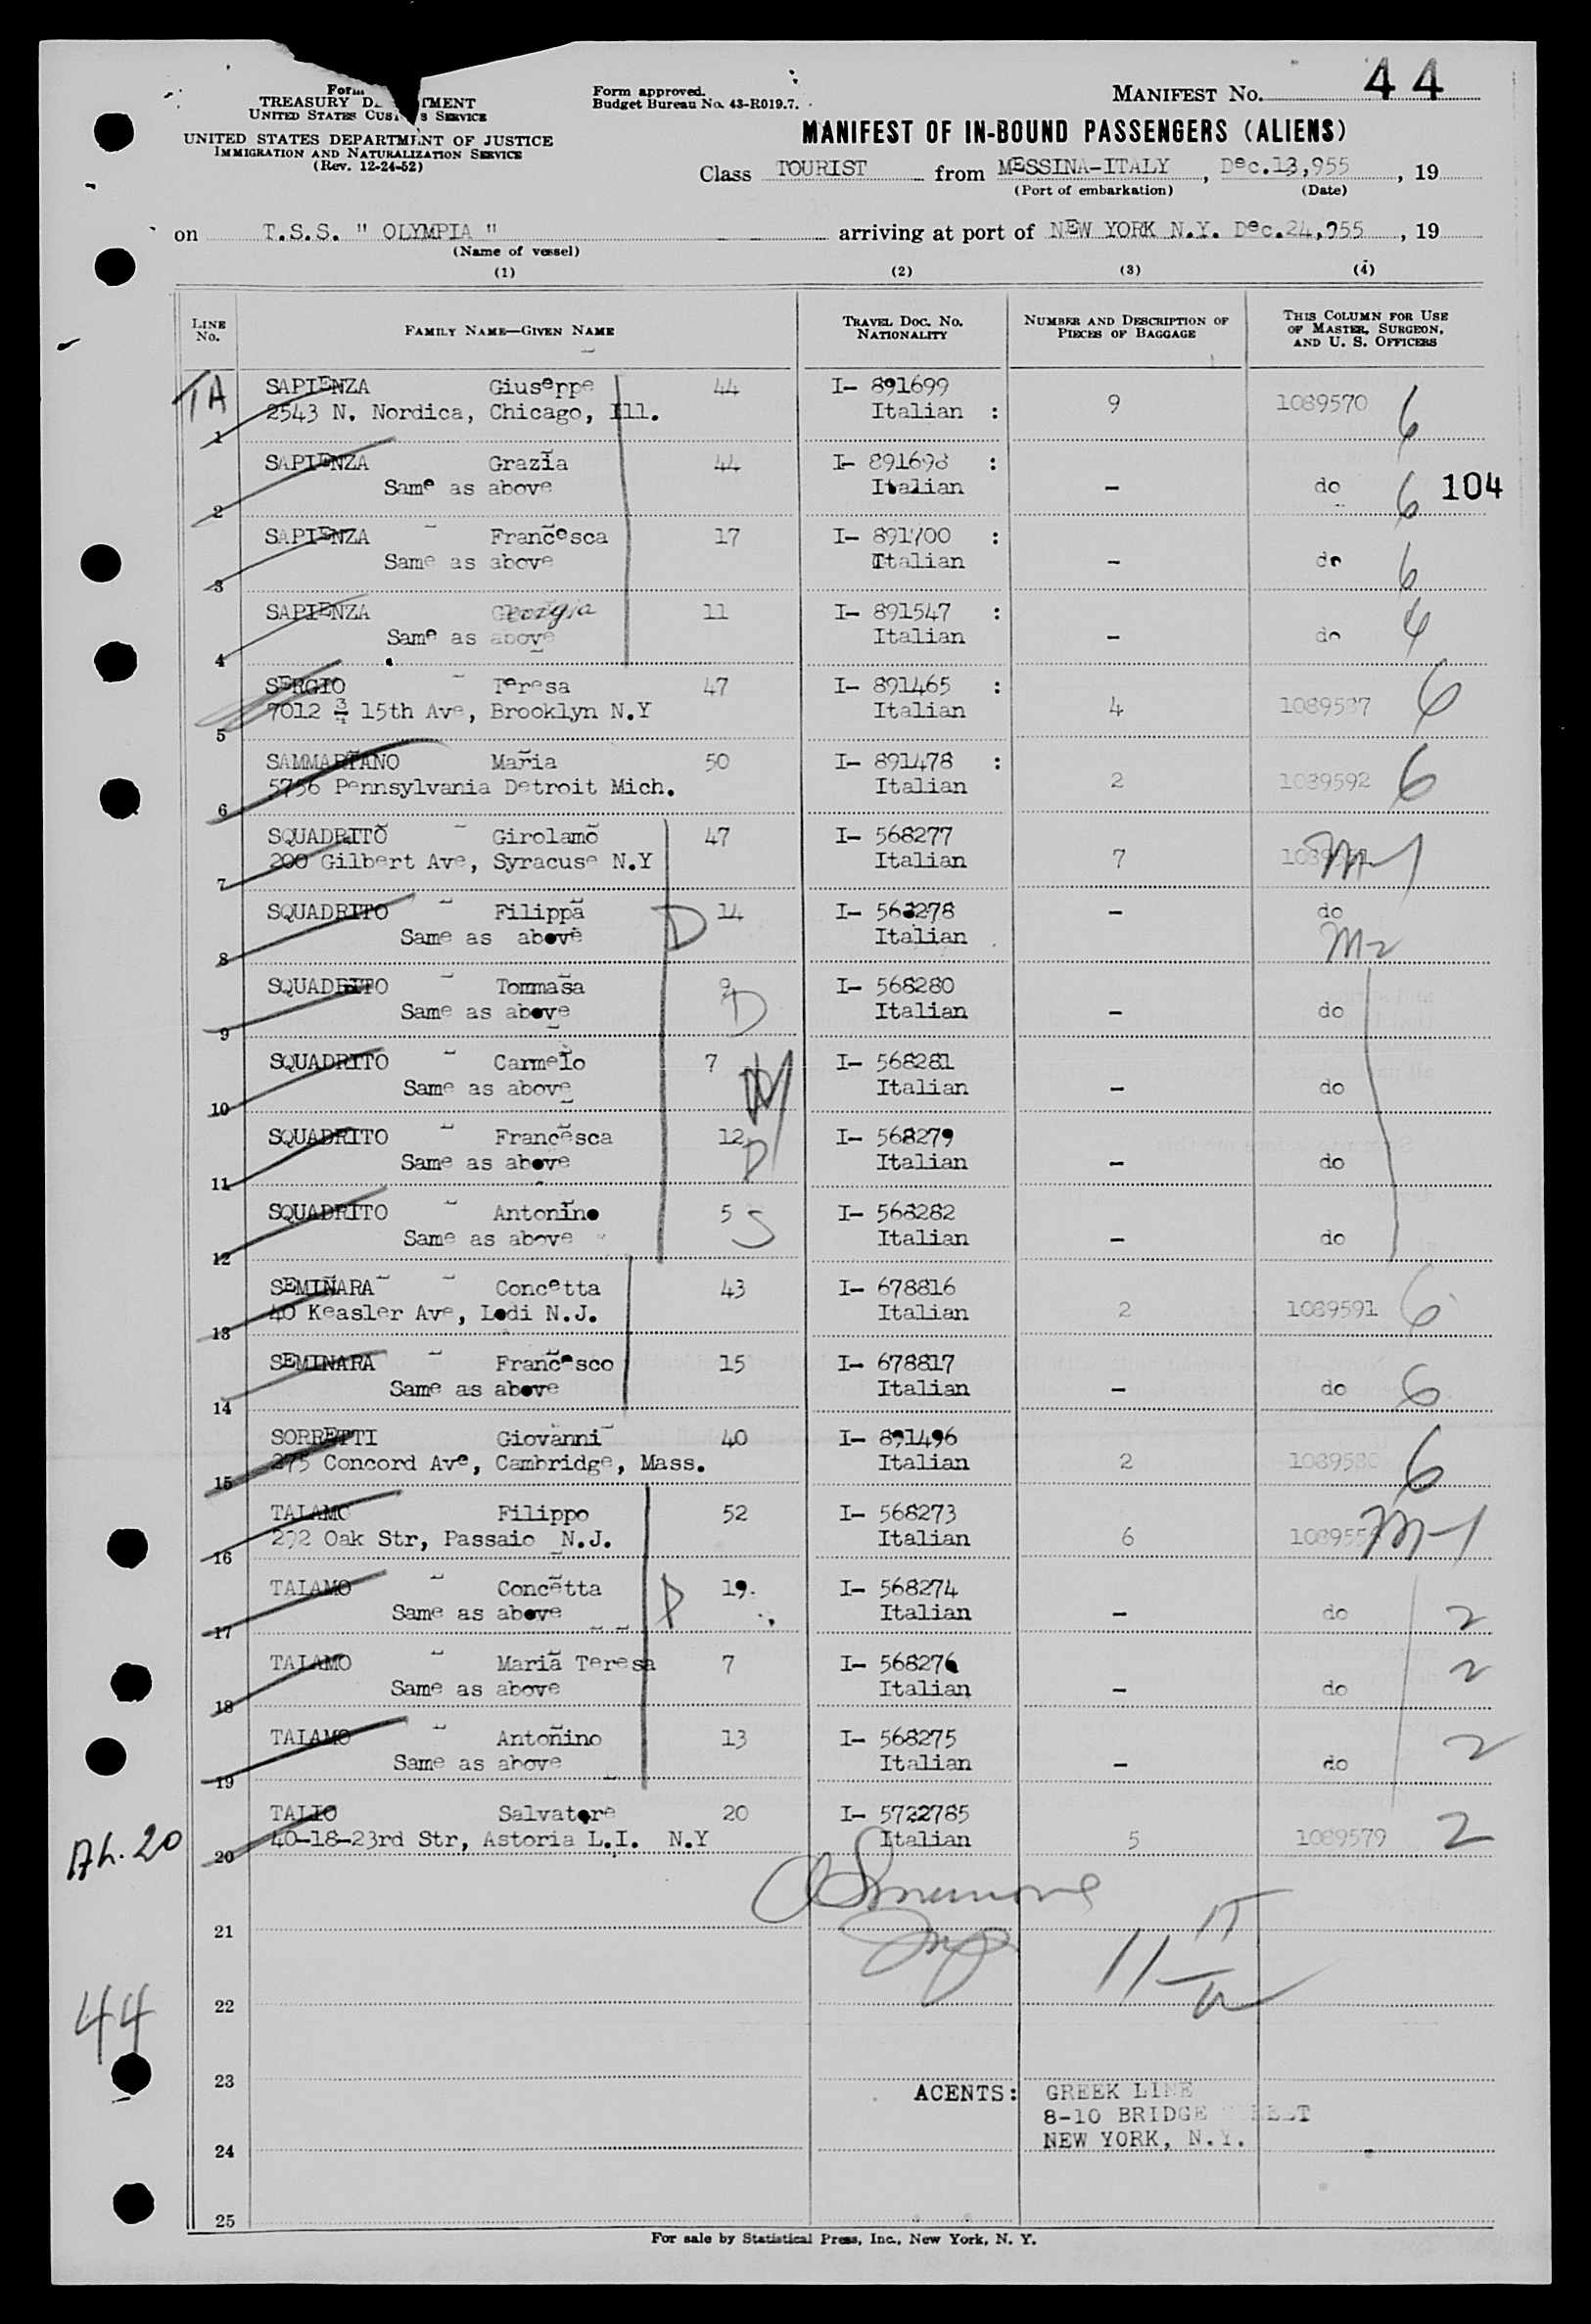 MANIFEST NO. 44
TREASURY
UNITED STATES SERVICE
UNITED STATES DEPARTMENT OF JUSTICE
IMMIGRATION AND NATURALIZATION SERVICE
(Rev. 12-24-52)
Form approved.
Budget Bureau No. 43-R019.7.
MANIFEST OF IN-BOUND PASSENGERS (ALIENS)
Class TOURIST from MESSINA-ITALY, Dec.13,955, 19
(Port of embarkation) (Date)
on T.S.S. " OLYMPIA " arriving at port of NEW YORK N.Y. Dec.24,955, 19
(Name of vessel)
(1) (2) (3) (4)
LINE No. FAMILY NAME—GIVEN NAME TRAVEL DOC. NO. NATIONALITY NUMBER AND DESCRIPTION OF PIECES OF BAGGAGE THIS COLUMN FOR USE OF MASTER, SURGEON, AND U. S. OFFICERS
TA SAPIENZA Giuseppe 44 I- 891699
1 2543 N. Nordica, Chicago, Ill. Italian : 9 1089570 6
SAPIENZA Grazia 44 I- 891698 :
2 Same as above Italian - do 6 104
SAPIENZA Francesca 17 I- 891700 :
3 Same as above Italian - do 6
SAPIENZA Georgia 11 I- 891547 :
4 Same as above Italian - do 4
SERGIO Teresa 47 I- 891465 :
5 7012 3/4 15th Ave, Brooklyn N.Y Italian 4 1089587 6
SAMMARTANO Maria 50 I- 891478 :
6 5756 Pennsylvania Detroit Mich. Italian 2 1089592 6
SQUADRITO Girolamo 47 I- 568277
7 200 Gilbert Ave, Syracuse N.Y Italian 7 M-1
SQUADRITO Filippa D 14 I- 568278 - do
8 Same as above Italian M2
SQUADRITO Tommasa 9 I- 568280
9 Same as above D Italian - do
SQUADRITO Carmelo 7 I- 568281
10 Same as above Italian - do
SQUADRITO Francesca 12 I- 568279
11 Same as above D Italian - do
SQUADRITO Antonino 5 I- 568282
12 Same as above S Italian - do
SEMINARA Concetta 43 I- 678816
13 40 Keasler Ave, Lodi N.J. Italian 2 1089591 6
SEMINARA Francesco 15 I- 678817
14 Same as above Italian - do 6
SORRETTI Giovanni 40 I- 891496
15 275 Concord Ave, Cambridge, Mass. Italian 2 6
TALAMO Filippo 52 I- 568273
16 292 Oak Str, Passaic N.J. Italian 6 M-1
TALAMO Concetta D 19. I- 568274
17 Same as above Italian - do 2
TALAMO Maria Teresa 7 I- 568276
18 Same as above Italian - do 2
TALAMO Antonino 13 I- 568275
19 Same as above Italian - do 2
TALIO Salvatore 20 I- 5722785
20 40-18-23rd Str, Astoria L.I. N.Y Italian 5 1089579 2
AL. 20
21
22
44
23
ACENTS: GREEK LINE
8-10 BRIDGE STREET
24 NEW YORK, N.Y.
25
For sale by Statistical Press, Inc., New York, N. Y.